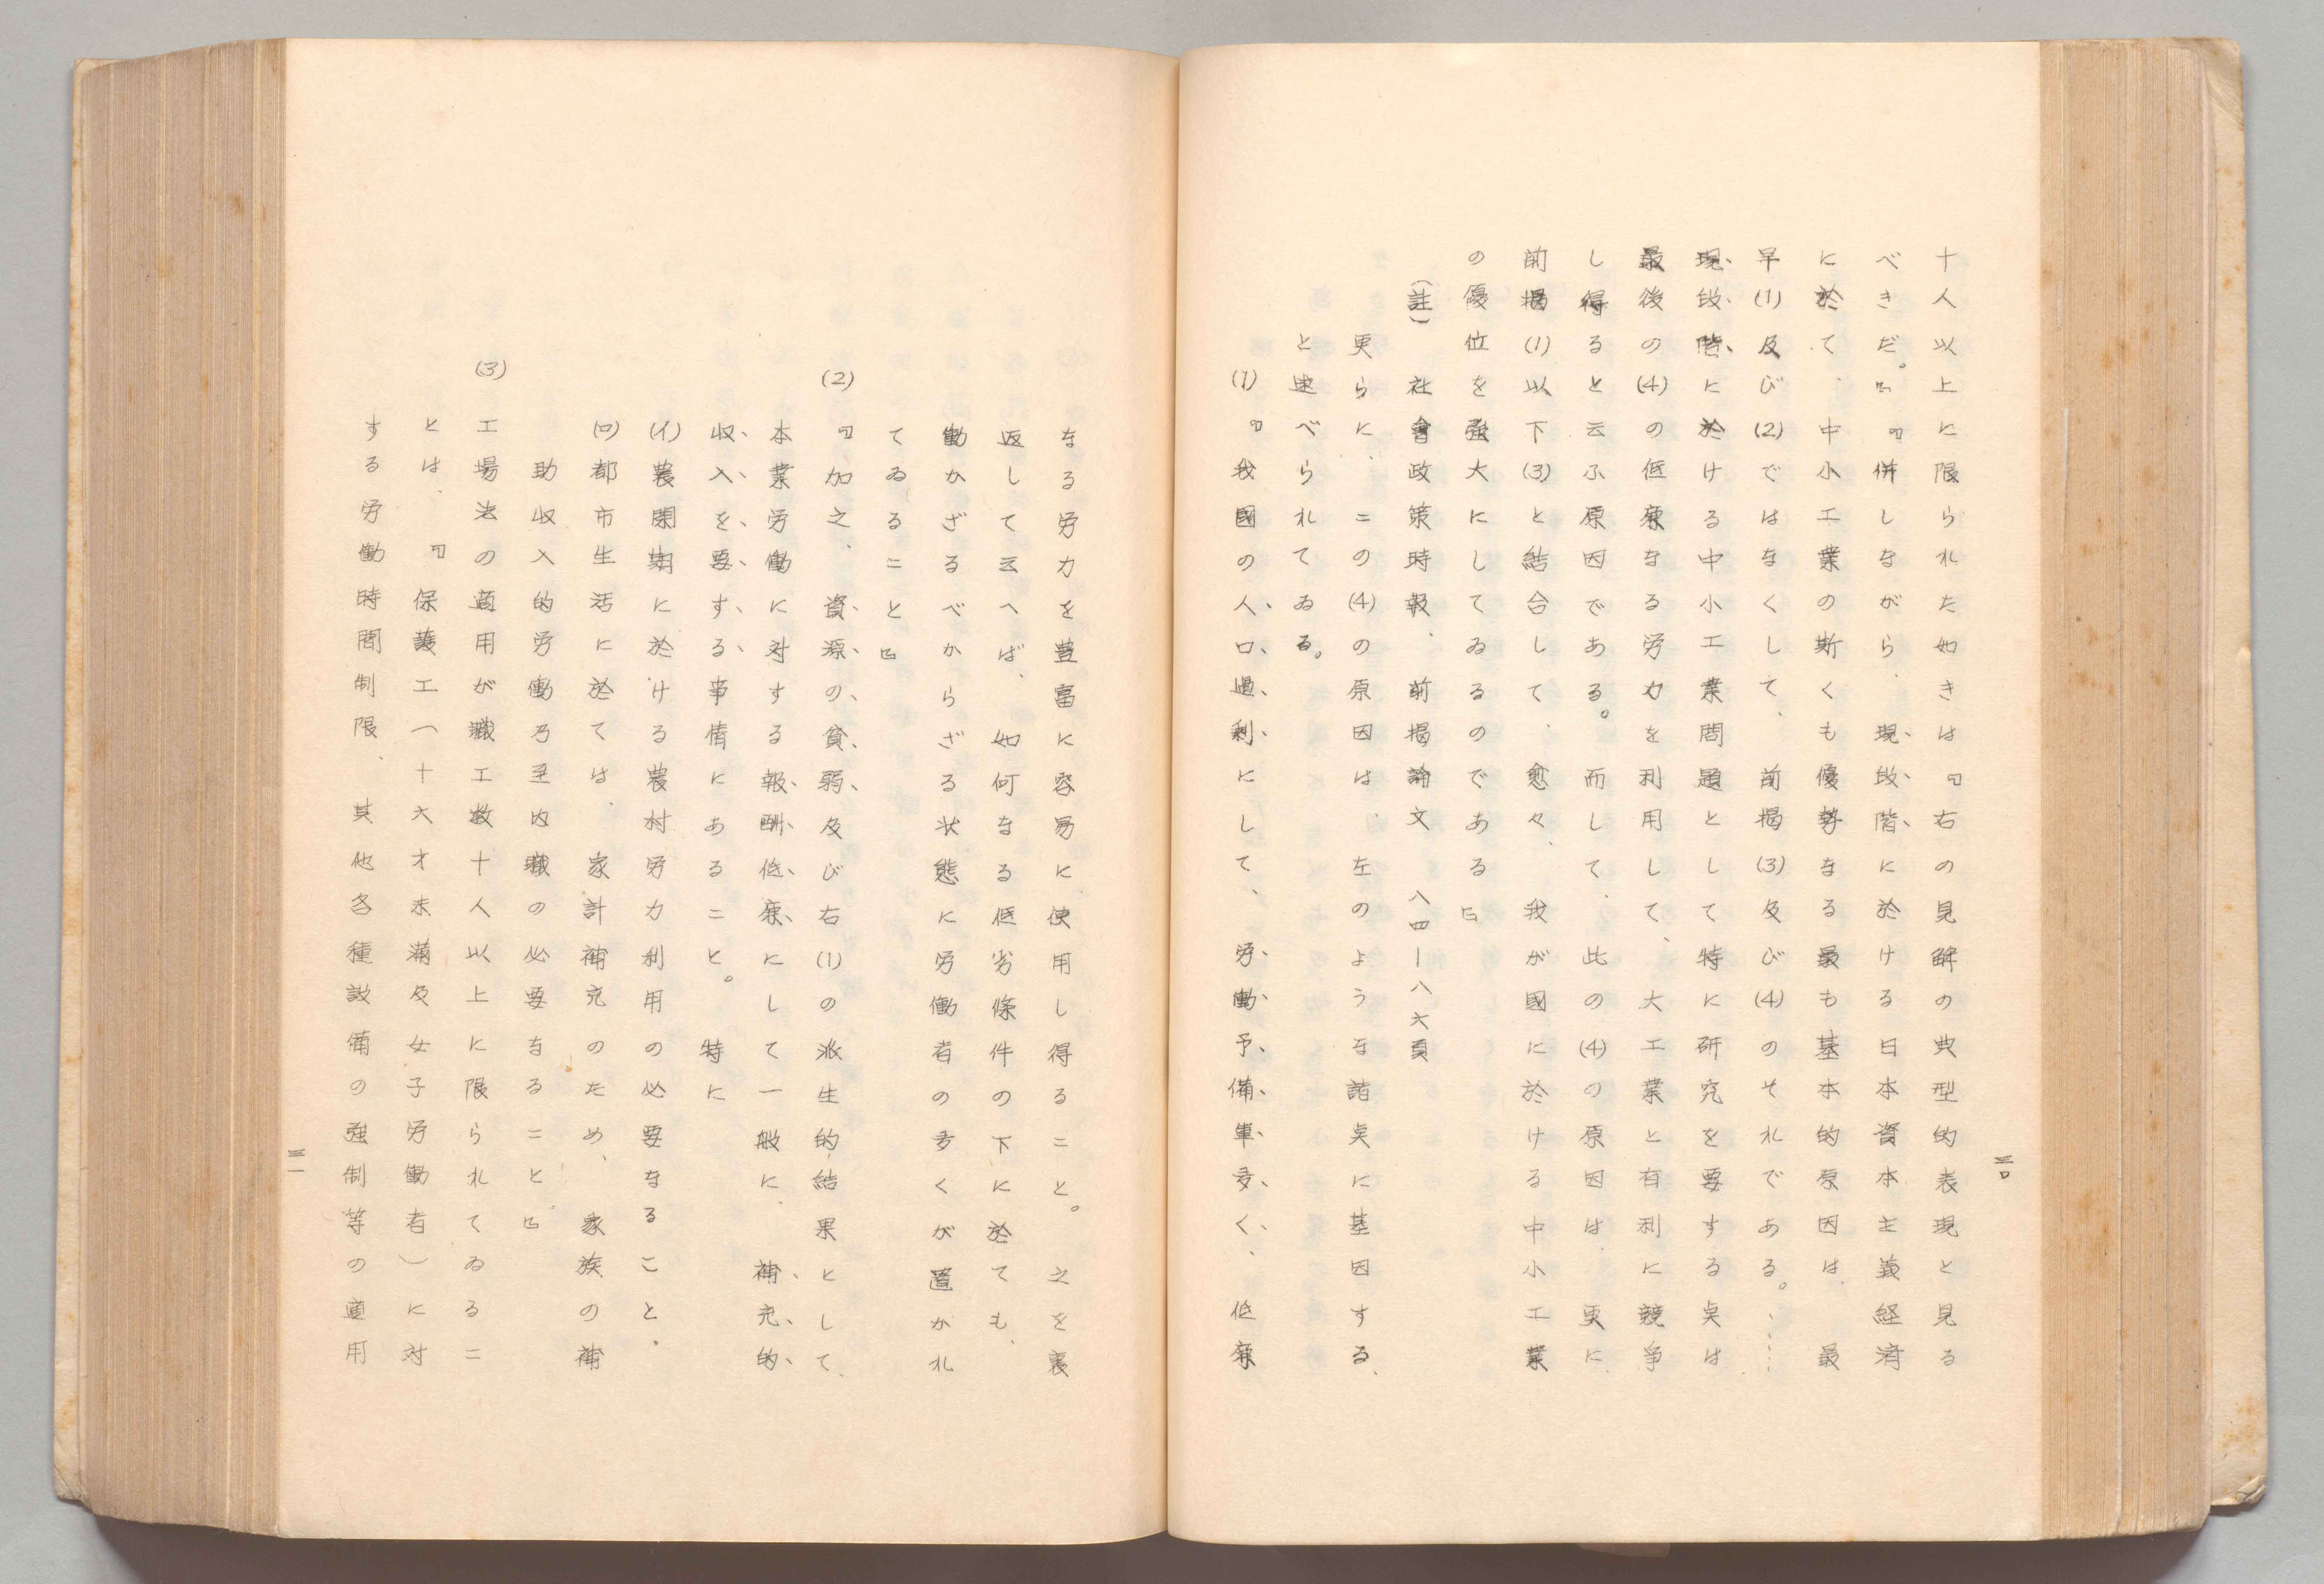 十人以上に限られた如きは『右の見解の典型的表現と見る
べきだ。』『併しながら、現段階に於ける日本資本主義経済
に於て、中小工業の斯くも優勢なる最も基本的原因は、最
早(1)及び(2)ではなくして、前掲(3)及び(4)のそれである。……
現段階に於ける中小工業問題として特に研究を要する点は
最後の(4)の低廉なる労力を利用して、大工業と有利に競争
し得ると云ふ原因である。而して、此の(4)の原因は、更に、
前掲(1)以下(3)と結合して、愈々、我が國に於ける中小工業
の優位を強大にしてゐるのである』
(註) 社會政策時報、前掲論文 八四－八六頁
更らに、この(4)の原因は、左のような諸点に基因する、
と述べられてゐる。
(1)『我國の人口過剰にして、労働予備軍多く、低廉
三〇
なる労力を豊富に容易に使用し得ること。之を裏
返して云へば、如何なる低劣條件の下に於ても、
働かざるべからざる状態に労働者の多くが置かれ
てゐること』
(2)『加之、資源の貧弱及び右(1)の派生的結果として、
本業労働に対する報酬低廉にして一般に、補充的
収入を要する事情にあること。特に
(イ)農閑期に於ける農村労力利用の必要なること、
(ロ)都市生活に於ては、家計補充のため、家族の補
助収入的労働乃至内職の必要なること』
(3)工場法の適用が職工数十人以上に限られてゐるこ
とは、『保護工(十六才未満及女子労働者)に対
する労働時間制限、其他各種設備の強制等の適用
三一